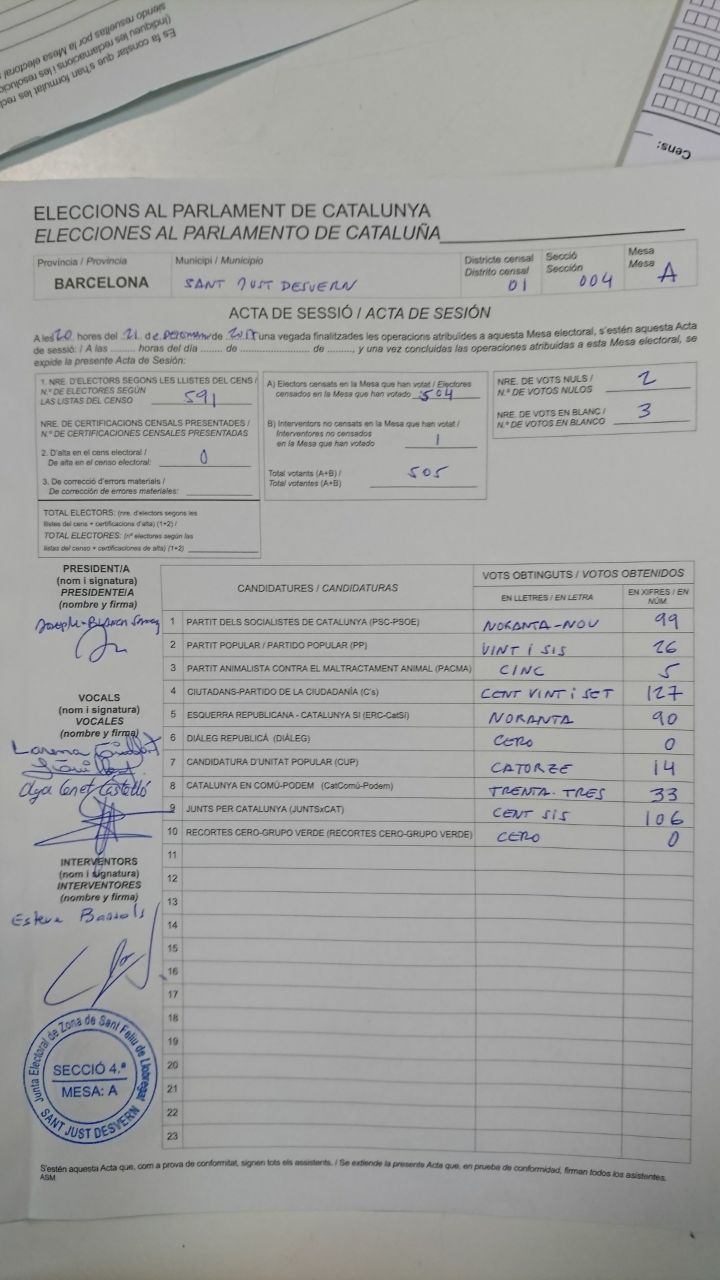 Es fa constar que s'han formulat les recl
(indiqueu les reclamacions i les resolucio
siendo resueltas por la Mesa electoral
Cens:
ELECCIONS AL PARLAMENT DE CATALUNYA
ELECCIONES AL PARLAMENTO DE CATALUÑA
Província / Provincia
BARCELONA
Municipi / Municipio
SANT JUST DESVERN
Districte censal
Distrito censal
01
Secció
Sección
004
Mesa
Mesa
A
ACTA DE SESSIÓ / ACTA DE SESIÓN
A les 20 hores del 21 de DESEMBRE de 2017 una vegada finalitzades les operacions atribuïdes a aquesta Mesa electoral, s'estén aquesta Acta
de sessió: / A las ........ hores del día ....... de ........................ de ........, y una vez concluidas las operaciones atribuidas a esta Mesa electoral, se
expide la presente Acta de Sesión:
1. NRE. D'ELECTORS SEGONS LES LLISTES DEL CENS /
N.º DE ELECTORES SEGÚN
LAS LISTAS DEL CENSO 591
NRE. DE CERTIFICACIONS CENSALS PRESENTADES /
N.º DE CERTIFICACIONES CENSALES PRESENTADAS
2. D'alta en el cens electoral /
De alta en el censo electoral: 0
3. De correcció d'errors materials /
De corrección de errores materiales:
TOTAL ELECTORS: (nre. d'electors segons les
llistes del cens + certificacions d'alta) (1+2) /
TOTAL ELECTORES: (nº electores según las
listas del censo + certificaciones de alta) (1+2)
A) Electors censats en la Mesa que han votat / Electores
censados en la Mesa que han votado 504
B) Interventors no censats en la Mesa que han votat /
Interventores no censados
en la Mesa que han votado 1
Total votants (A+B) /
Total votantes (A+B) 505
NRE. DE VOTS NULS /
N.º DE VOTOS NULOS 2
NRE. DE VOTS EN BLANC /
N.º DE VOTOS EN BLANCO 3
PRESIDENT/A
(nom i signatura)
PRESIDENTE/A
(nombre y firma)
VOCALS
(nom i signatura)
VOCALES
(nombre y firma)
Lorena
Olga Canet Castelló
INTERVENTORS
(nom i signatura)
INTERVENTORES
(nombre y firma)
Esteve Bassols
CANDIDATURES / CANDIDATURAS
VOTS OBTINGUTS / VOTOS OBTENIDOS
EN LLETRES / EN LETRA
EN XIFRES / EN
NÚM.
1 PARTIT DELS SOCIALISTES DE CATALUNYA (PSC-PSOE) NORANTA-NOU 99
2 PARTIT POPULAR / PARTIDO POPULAR (PP) VINT i SIS 26
3 PARTIT ANIMALISTA CONTRA EL MALTRACTAMENT ANIMAL (PACMA) CINC 5
4 CIUTADANS-PARTIDO DE LA CIUDADANÍA (C's) CENT VINT i SET 127
5 ESQUERRA REPUBLICANA - CATALUNYA SÍ (ERC-CatSí) NORANTA 90
6 DIÀLEG REPUBLICÀ (DIÀLEG) CERO 0
7 CANDIDATURA D'UNITAT POPULAR (CUP) CATORZE 14
8 CATALUNYA EN COMÚ-PODEM (CatComú-Podem) TRENTA-TRES 33
9 JUNTS PER CATALUNYA (JUNTSxCAT) CENT SIS 106
10 RECORTES CERO-GRUPO VERDE (RECORTES CERO-GRUPO VERDE) CERO 0
11
12
13
14
15
16
17
18
19
20
21
22
23
Junta Electoral de Zona de Sant Feliu de Llobregat
SECCIÓ 4.ª
MESA: A
SANT JUST DESVERN
S'estén aquesta Acta que, com a prova de conformitat, signen tots els assistents. / Se extiende la presente Acta que, en prueba de conformidad, firman todos los asistentes.
ASM